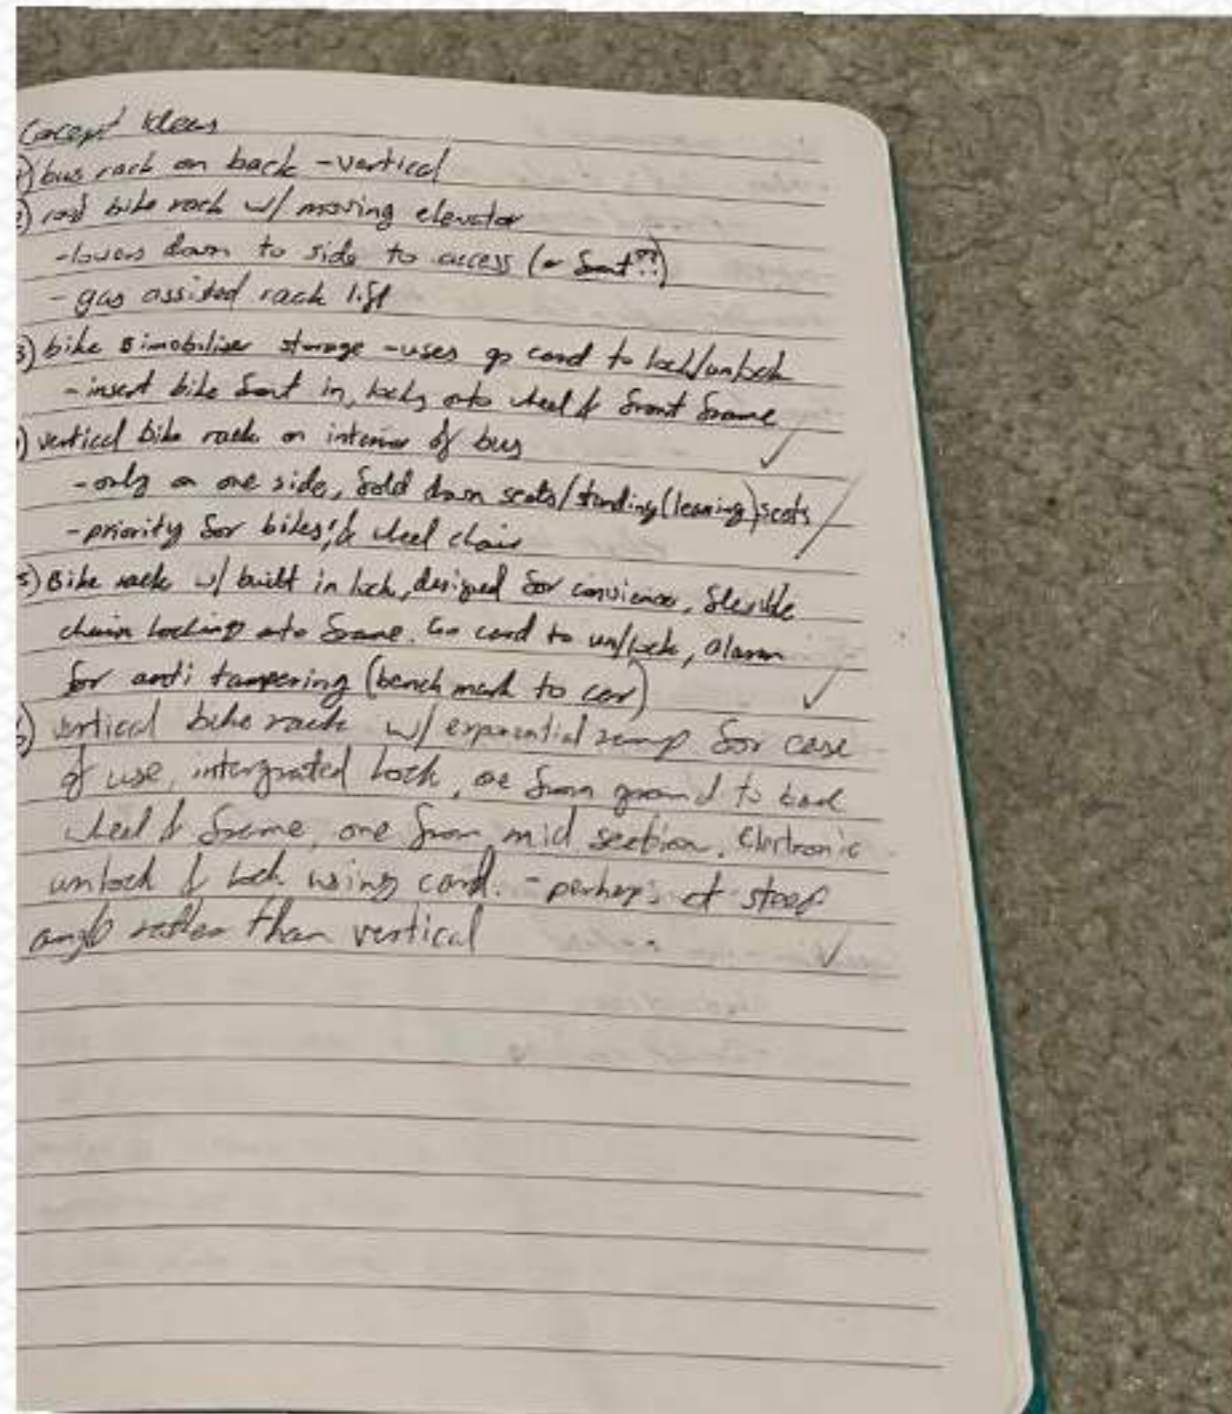 Cocept Ideas
1) bus rack on back - vertical
2) roof bike rack w/ moving elevator
- lowers down to side to access (or front??)
- gas assisted rack lift
3) bike imobiliser storage - uses go card to lock/unlock
- insert bike front in, locks onto wheel & front frame ✓
4) vertical bike rack on interior of bus
- only on one side, fold down seats/standing(leaning)seats
- priority for bikes & wheel chair
5) Bike rack w/ built in lock, designed for convience, flexible
chain locking onto frame. Go card to un/lock, alarm
for anti tampering (bench mark to car) ✓
6) vertical bike rack w/ exponential ramp for ease
of use, intergrated lock, one from ground to back
wheel & frame, one from mid section. Electronic
unlock & lock using card. - perhaps at steep
angle rather than vertical ✓